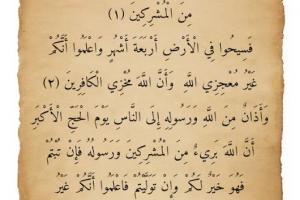 مِنَ الْمُشْرِكِينَ (١)
فَسِيحُوا فِي الْأَرْضِ أَرْبَعَةَ أَشْهُرٍ وَاعْلَمُوا أَنَّكُمْ
غَيْرُ مُعْجِزِي اللَّهِ وَأَنَّ اللَّهَ مُخْزِي الْكَافِرِينَ (٢)
وَأَذَانٌ مِنَ اللَّهِ وَرَسُولِهِ إِلَى النَّاسِ يَوْمَ الْحَجِّ الْأَكْبَرِ
أَنَّ اللَّهَ بَرِيءٌ مِنَ الْمُشْرِكِينَ وَرَسُولُهُ فَإِنْ تُبْتُمْ
فَهُوَ خَيْرٌ لَكُمْ وَإِنْ تَوَلَّيْتُمْ فَاعْلَمُوا أَنَّكُمْ غَيْرُ